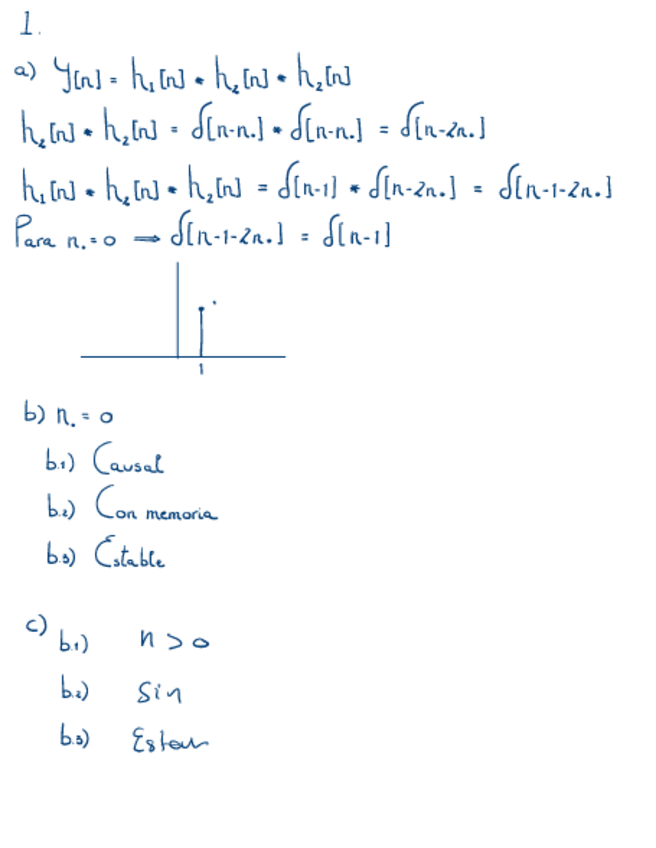 1.
a) y[n] = h₁[n] * h₂[n] * h₂[n]
h₂[n] * h₂[n] = δ[n-n₀] * δ[n-n₀] = δ[n-2n₀]
h₁[n] * h₂[n] * h₂[n] = δ[n-1] * δ[n-2n₀] = δ[n-1-2n₀]
Para n₀=0 ⟹ δ[n-1-2n₀] = δ[n-1]
1
b) n₀ = 0
b.1) Causal
b.2) Con memoria
b.3) Estable
c)
b.1) n > 0
b.2) Sin
b.3)